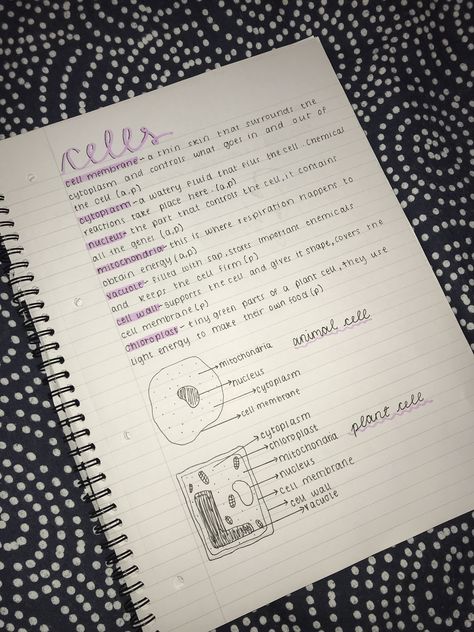 cells
cell membrane - a thin skin that surrounds the
cytoplasm and controls what goes in and out of
the cell (a,p)
cytoplasm - a watery fluid that fills the cell. Chemical
reactions take place here. (a,p)
nucleus - the part that controls the cell, it contains
all the genes (a,p)
mitochondria - this is where respiration happens to
obtain energy (a,p)
vacuole - filled with sap, stores important chemicals
and keeps the cell firm (p)
cell wall - supports the cell and gives it shape, covers the
cell membrane (p)
chloroplast - tiny green parts of a plant cell, they use
light energy to make their own food (p)
animal cell
mitochondria
nucleus
cytoplasm
cell membrane
plant cell
cytoplasm
chloroplast
mitochondria
nucleus
cell membrane
cell wall
vacuole